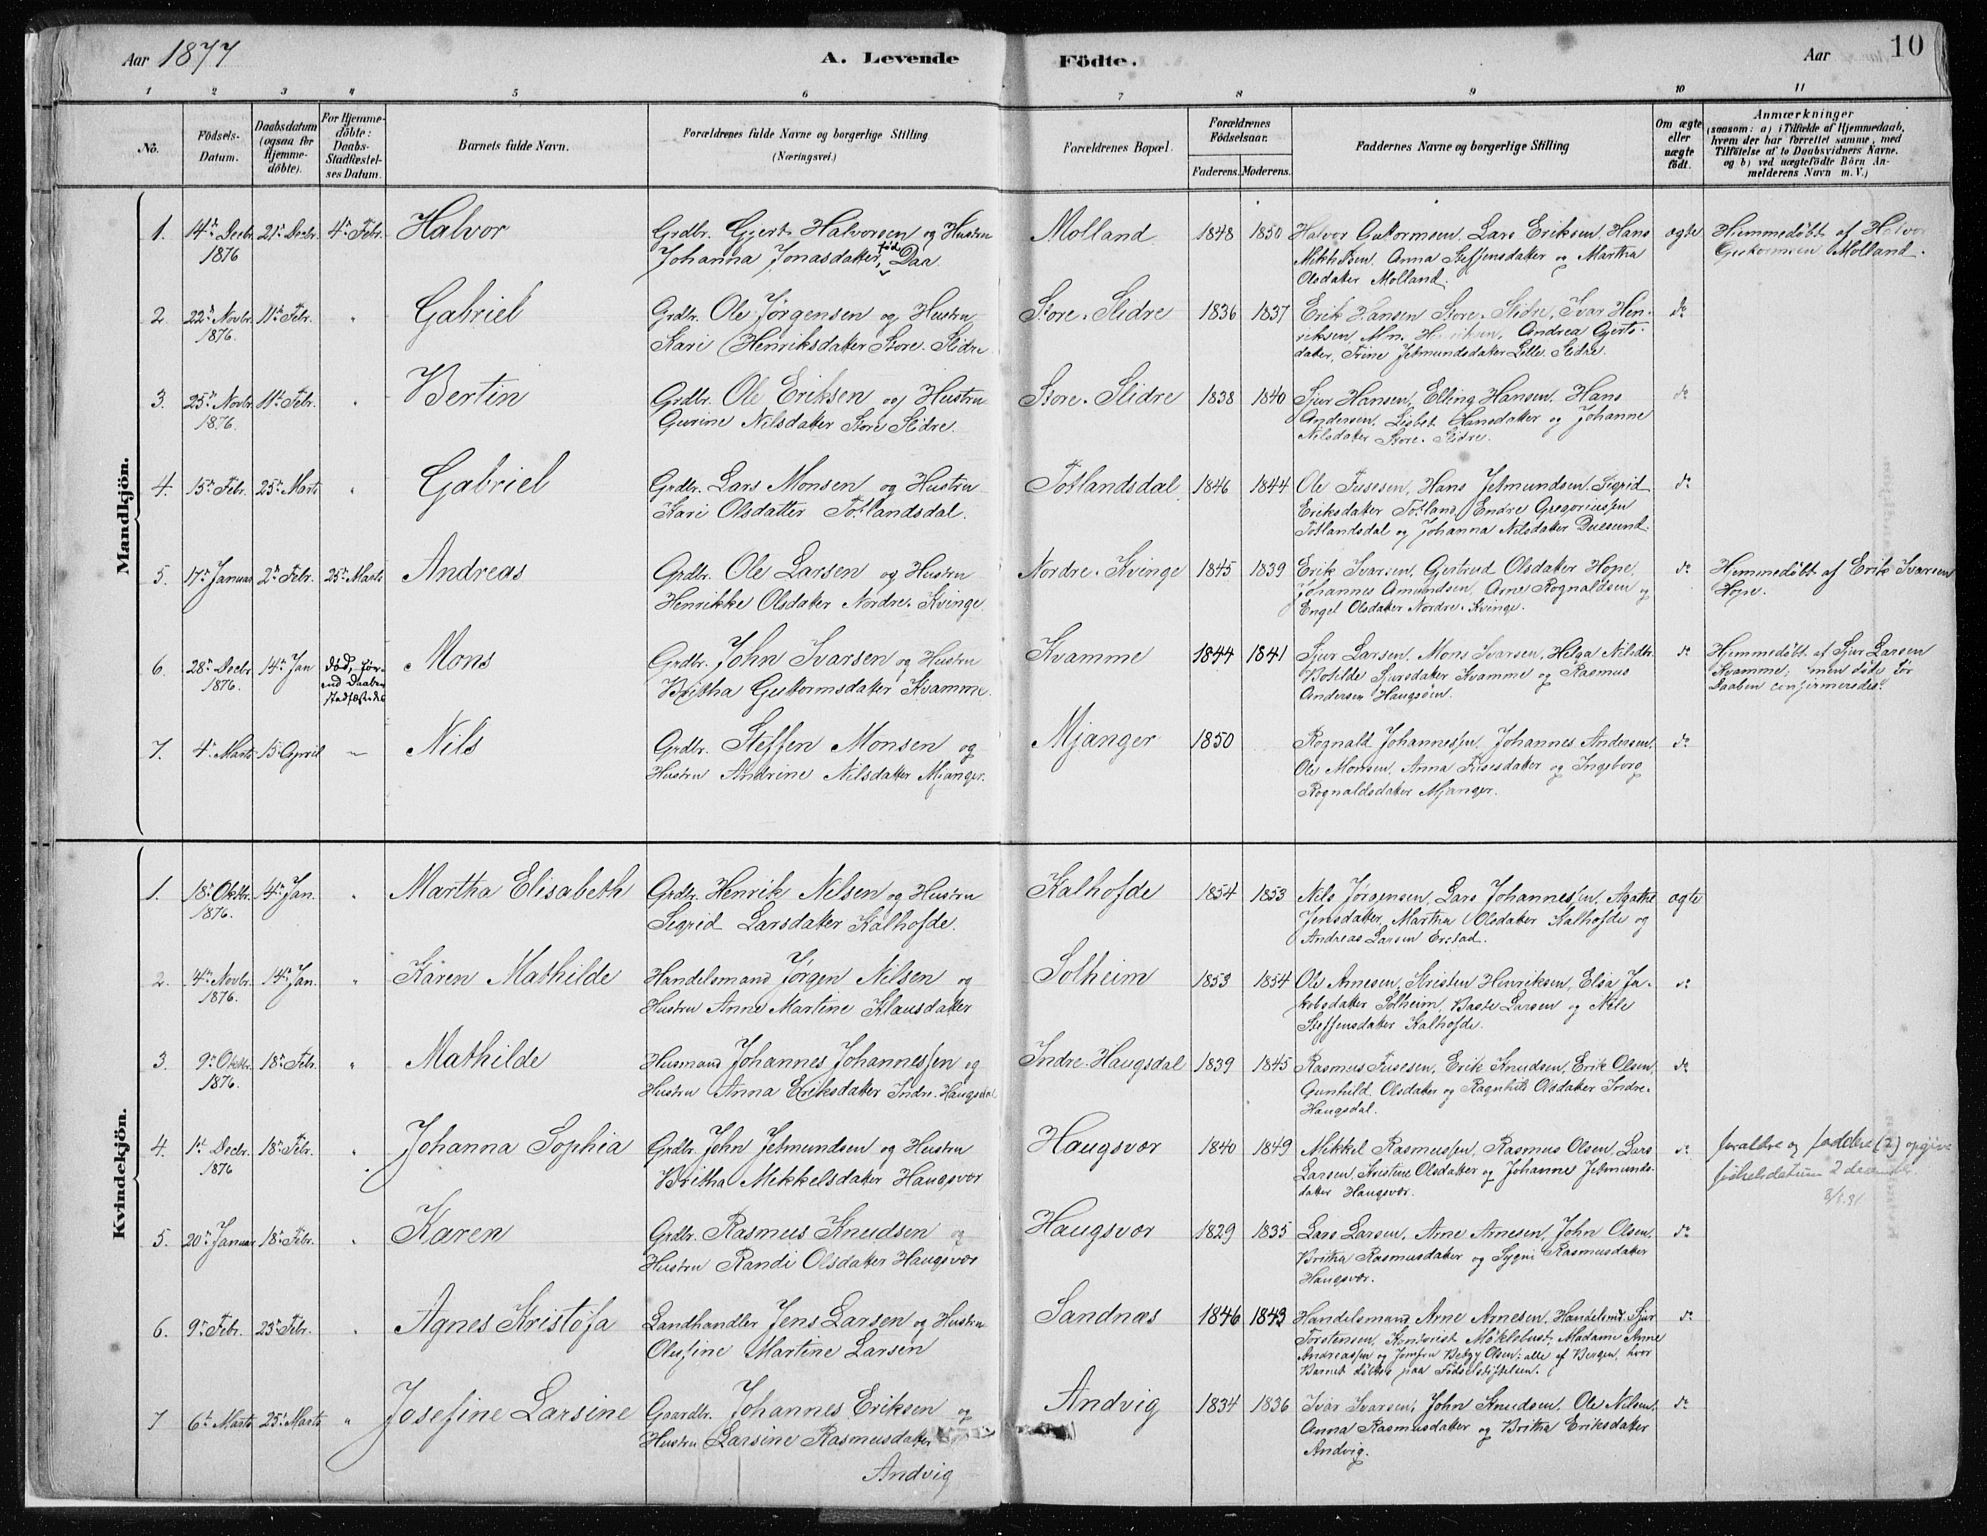 Aar 1877
A. Levende
Födte.
Aar
10
1 2 3 4 5 6 7 8 9 10 11
No.
Födsels-
Datum.
Daabsdatum
(ogsaa for
Hjemme-
döbte).
For Hjemme-
döbte:
Daabs-
Stadfæstel-
ses Datum.
Barnets fulde Navn.
Forældrenes fulde Navne og borgerlige Stilling
(Næringsvei.)
Forældrenes Bopæl.
Forældrenes
Födselsaar.
Faderens. Moderens.
Faddernes Navne og borgerlige Stilling
Om ægte
eller
uægte
født.
Anmærkninger
(saasom: a) i Tilfælde af Hjemmedaab,
hvem der har forrettet samme, med
Tilföielse af to Daabsvidners Navne,
og b) ved uægtefödte Börn An-
melderens Navn m. V.)
Mandkjön.
1. 14de Decbr. 1876 21de Decbr. 4de Febr. Halvor
Grdbr. Gjert Halvorsen og Hustru
Johanna Jonasdatter, född Daa.
Molland 1848 1850
Halvor Guttormsen, Lars Eriksen, Hans
Mikkelsen, Anna Steffensdatter og Martha
Olsdatter Molland.
ægte
Hjemmedöbt af Halvor
Guttormsen Molland.
2. 22de Novbr. 1876. 11te Febr. " Gabriel
Grdbr. Ole Jørgensen og Hustru
Kari Henriksdatter Store-Slidre
Store-Slidre 1836 1837
Erik Hansen Store-Slidre, Ivar Hen-
riksen, Andrea Gjerts-
datter, Trine Jetmundsdatter Lille-Slidre.
do
3. 25de Novbr. 1876. 11te Febr. " Bertin
Grdbr. Ole Eriksen og Hustru
Gurine Nilsdatter Store Slidre.
Store-Slidre 1838 1840
Sjur Hansen, Elling Hansen, Hans
Andersen, Lisbet Hansdatter og Johanne
Nilsdatter Store-Slidre.
do
4. 15de Febr. 25de Marts " Gabriel
Grdbr. Lars Monsen og Hustru
Kari Olsdatter Totlandsdal.
Totlandsdal 1846 1844
Ole Fusesen, Hans Jetmundsen, Sigrid
Eriksdatter Totland, Endre Gregoriussen
Totlandsdal og Johanna Nilsdatter Duesund.
do
5. 17de Januar 2den Febr. 25de Marts Andreas
Grdbr. Ole Larsen og Hustru
Henrikke Olsdatter Nordre-Kvinge.
Nordre-Kvinge 1845 1839
Erik Ivarsen, Gjertrud Olsdatter Hope,
Johannes Amundsen, Arne Rognaldsen og
Engel Olsdatter Nordre-Kvinge.
do
Hjemmedöbt af Erik Ivarsen
Hope.
6. 28de Decbr. 1876. 14de Jan
död, för-
end Daaben
stadfæstedes
Mons
Grdbr. John Ivarsen og Hustru
Britha Guttormsdatter Kvamme.
Kvamme 1844 1841
Sjur Larsen, Mons Ivarsen, Helga Nilsdtr.
Botilde Sjursdatter Kvamme og Rasmus
Andersen Haugsöen.
do
Hjemmedöbt af Sjur Larsen
Kvamme; men döde för
Daaben confirmeredes.
7. 4de Marts 15 April " Nils
Grdbr. Steffen Monsen og
Hustru Andrine Nilsdatter Mjanger.
Mjanger 1850
Rognald Johannessen, Johannes Andersen,
Ole Monsen, Anna Fusesdatter og Ingeborg
Rognaldsdatter Mjanger.
do
Kvindekjön.
1. 18de Oktbr. 1876. 4de Jan. " Martha Elisabeth
Grdbr. Henrik Nilsen og Hustru
Sigrid Larsdatter Kalhofde.
Kalhofde 1854 1853
Nils Jørgensen, Lars Johannessen, Agathe
Jensdatter, Martha Olsdatter Kalhofde og
Andreas Larsen Erstad.
ægte
2. 4de Novbr. 1876. 14de Jan. " Karen Mathilde
Handelsmand Jørgen Nilsen og
Hustru Anne Martine Klausdatter
Solheim 1853 1854
Ole Arnesen, Kristen Henriksen, Elsa Ja-
kobsdatter Solheim, Larsen og
Steffensdatter Kalhofde.
do
3 9de Oktbr. 1876. 18de Febr. " Mathilde
Husmand Johannes Johannessen og
Hustru Anna Eriksdatter Indre-Haugsdal
Indre-Haugsdal 1839 1845
Rasmus Fusesen, Erik Knudsen, Erik Olsen,
Gunhild Olsdatter og Ragnhild Olsdatter Indre-
Haugsdal.
do
4. 1ste Decbr. 1876 18de Febr. " Johanna Sophia
Grdbr. John Jetmundsen og Hustru
Britha Mikkelsdatter Haugsvær
Haugsvær 1840 1849
Mikkel Rasmussen, Rasmus Olsen, Lars
Larsen, Kristine Olsdatter og Johanne Jetmunds-
datter Haugsvær.
do
foraldre og faddere (2) opgive
födselsdatum 2 december.
5. 20de Januar 18de Febr. " Karen
Grdbr. Rasmus Knudsen og
Hustru Randi Olsdatter Haugsvær
Haugsvær 1829 1835
Lars Larsen, Arne Arnesen, John Olsen,
Britha Rasmusdatter og Sygni Rasmusdatter
Haugsvær.
do
6. 9de Febr. 23de Febr. " Agnes Kristofa
Landhandler Jens Larsen og Hustru
Olufine Martine Larsen
Sandnæs 1846 1843
Handelsmand Arne Arnesen, Handelsmd. Sjur
Torstensen, Kontorist Möklebust, Madam Anne
Andreassen og Jomfru Betzy Olsen; alle af Bergen, hvor
Barnet döbtes paa Födselstiftelsen.
do
7 6te Marts 25de Marts " Josefine Larsine
Gaardbr. Johannes Eriksen og
Hustru Larsine Rasmusdatter
Andvig
Andvig 1834 1836
Ivar Ivarsen, John Knudsen, Ole Nilsen,
Anna Rasmusdatter og Britha Eriksdatter
Andvig.
do